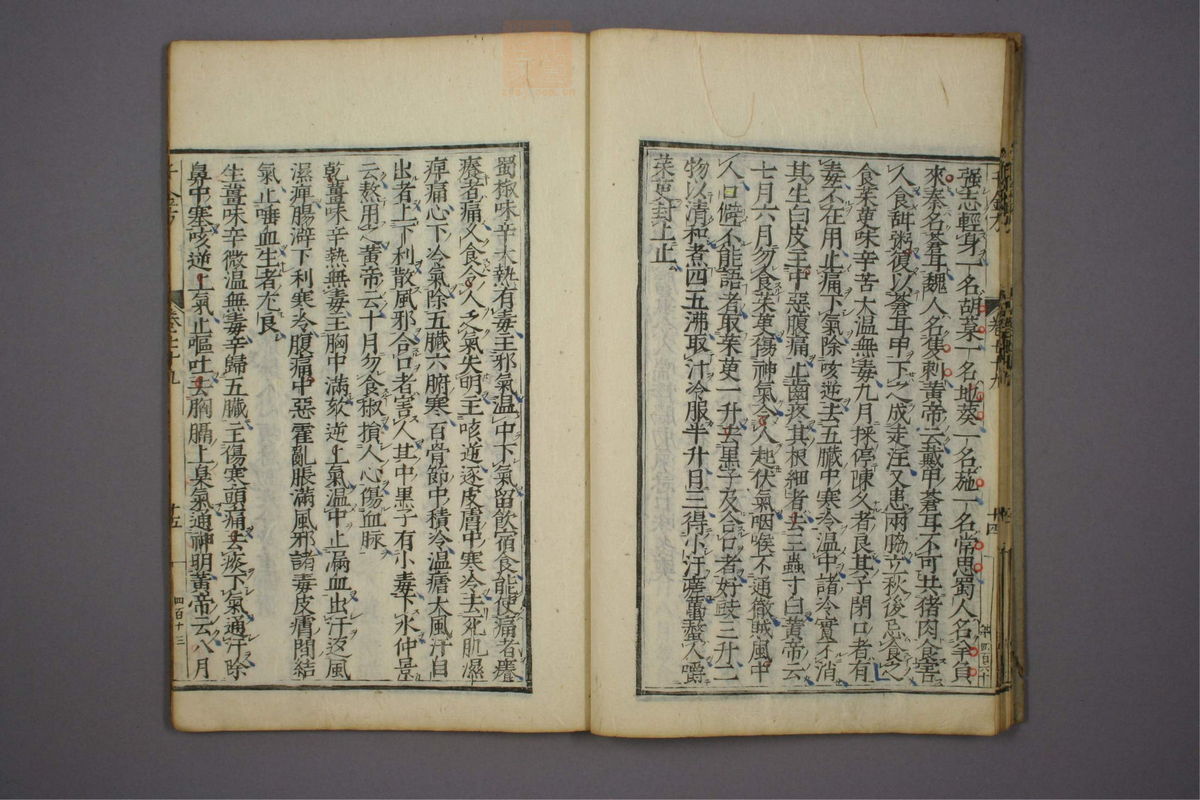 強志輕身一名胡菜一名地葵一名施一名常思蜀人名羊負
來秦名蒼耳魏人名隻刺黃帝云戴甲蒼耳不可共猪肉食害
人食甜粥復以蒼耳甲下之成走注又患兩脇立秋後忌食之
食茱萸味辛苦大溫無毒九月採停陳久者良其子閉口者有
毒不在用止痛下氣除咳逆去五臟中寒冷溫中諸冷實不消
其生白皮主中惡腹痛止齒疼其根細者去三蟲寸白黃帝云
七月六月勿食茱萸傷神氣令人起伏氣咽喉不通徹賊風中
人口僻不能語者取茱萸一升去黑子及合口者好豉三升二
物以清和煮四五沸取汁冷服半升日三得小汗蠆螫人嚼
茱萸封上止
蜀椒味辛大熱有毒主邪氣溫中下氣留飲宿食能使痛者癢
癢者痛久食令人乏氣失明主咳逆逐皮膚中寒冷去死肌濕
痺痛心下冷氣除五臟六腑寒百骨節中積冷溫瘧大風汗自
出者上下利散風邪合口者害人其中黑子有小毒下水仲景
云熬用之黃帝云十月勿食椒損人心傷血脉
乾薑味辛熱無毒主胸中滿咳逆上氣溫中止漏血出汗逐風
濕痺腸澼下利寒冷腹痛中惡霍亂脹滿風邪諸毒皮膚間結
氣止唾血生者尤良
生薑味辛微溫無毒辛歸五臟主傷寒頭痛去痰下氣通汗除
鼻中塞咳逆上氣止嘔吐去胸膈上臭氣通神明黃帝云八月
千金方
十五
四百十三